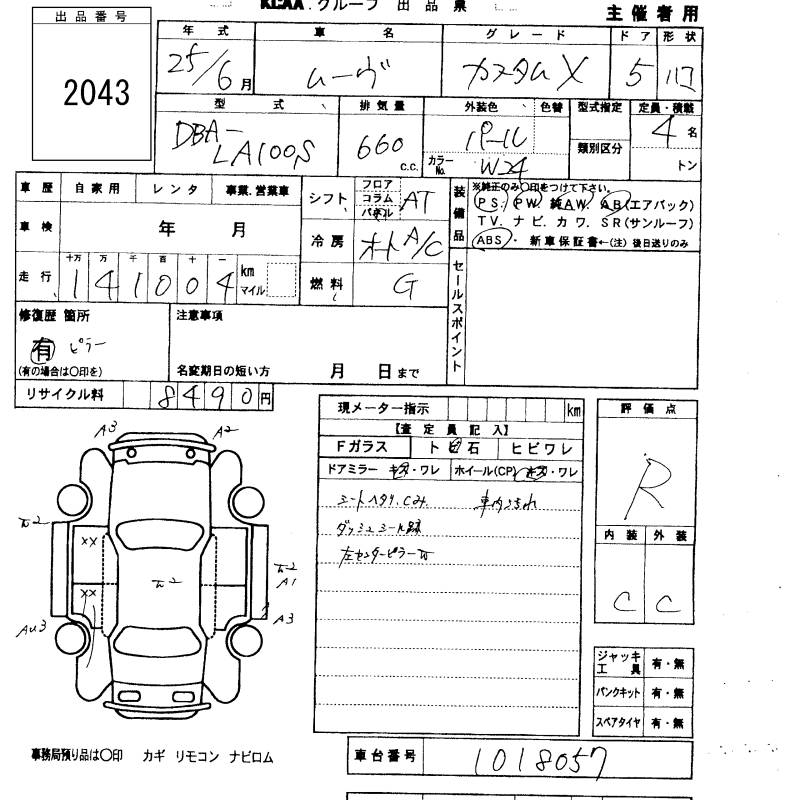 KCAA.グループ 出品票
主催者用
出品番号
2043
年式 車名 グレード ドア 形状
25/6月 ムーヴ カスタムX 5 ハコ
型式 排気量 外装色 色替 型式指定 定員・積載
DBA-LA100S 660 c.c. パール カラーNo. W24 類別区分 4名 トン
車歴 自家用 レンタ 事業.営業車
車検 年 月
走行 十万 万 千 百 十 一 km マイル
141004
シフト フロア コラム パネル AT
冷房 オートA/C
燃料 G
装備品 ※純正のみ〇印をつけて下さい。
PS. PW. 純AW. AB(エアバック)
TV. ナビ. カワ. SR(サンルーフ)
ABS・ 新車保証書←(注) 後日送りのみ
セールスポイント
修復歴 箇所
有 ピラー
(有の場合は〇印を)
注意事項
名変期日の短い方 月 日まで
リサイクル料 8490円
現メーター指示 km
【査定員記入】
Fガラス トビ石 ヒビワレ
ドアミラー キズ・ワレ ホイール(CP) キズ・ワレ
シートヘタリ.こみ 車内汚れ
ダッシュシール跡
左センターピラー
評価点
R
内装 外装
C C
A3 A2
2
××
2
2
A1
××
A3
AU3
ジャッキ 工具 有・無
パンクキット 有・無
スペアタイヤ 有・無
事務局預り品は〇印 カギ リモコン ナビロム
車台番号 1018057